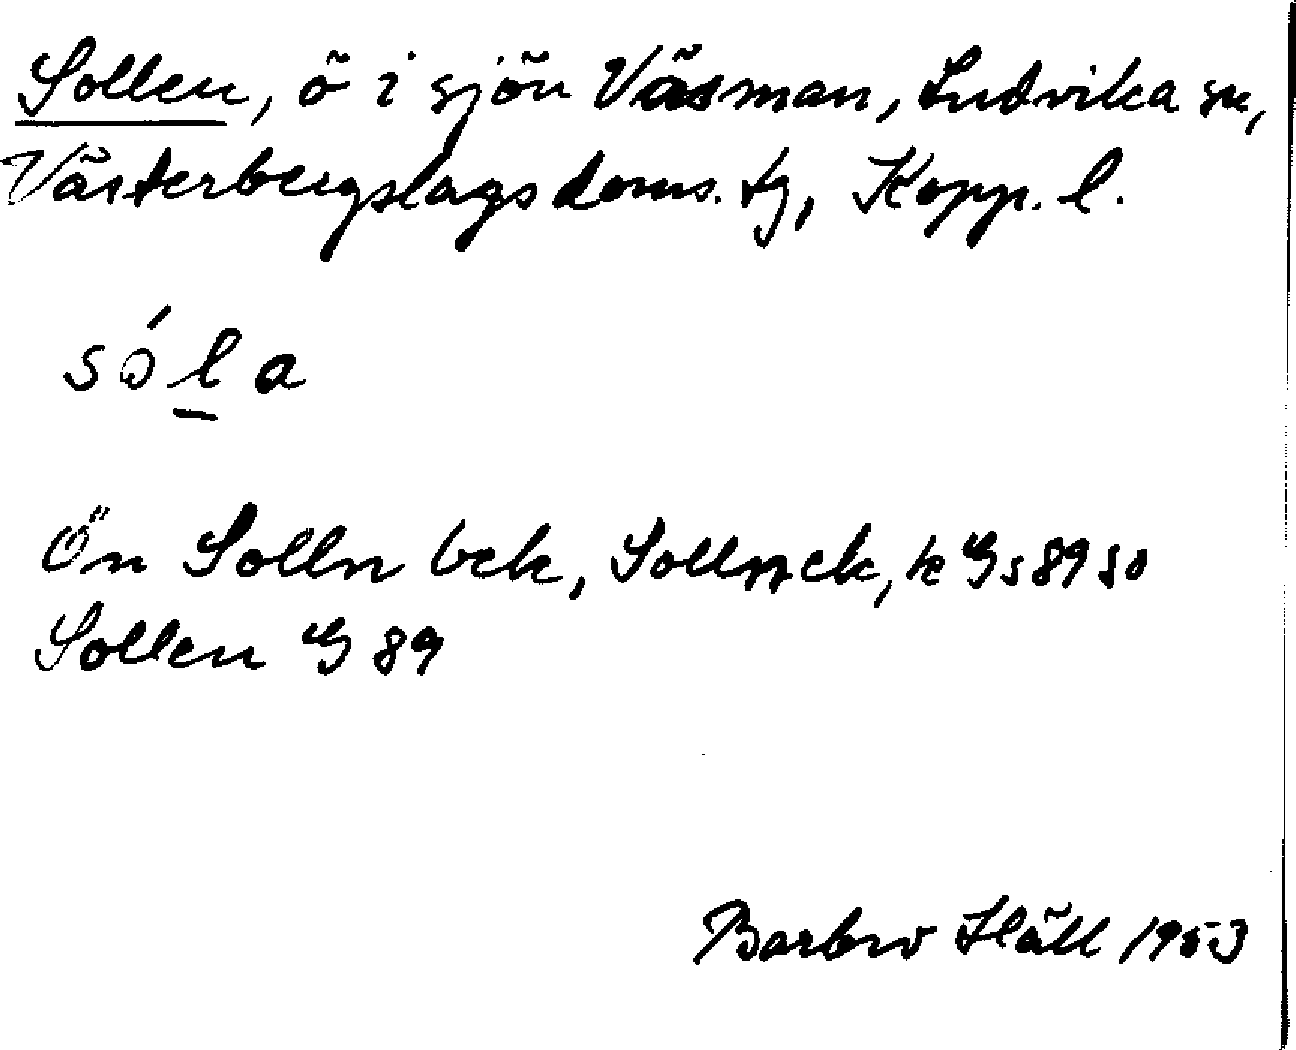 Sollen, ö i sjön Väsman, Ludvika sn,
Västerbergslags doms. tg, Kopp. l.
sɔ́l̲a
Ön Solln bek, Sollnek, k Gs 89 so
Sollen G 89
Barbro Häll 1953